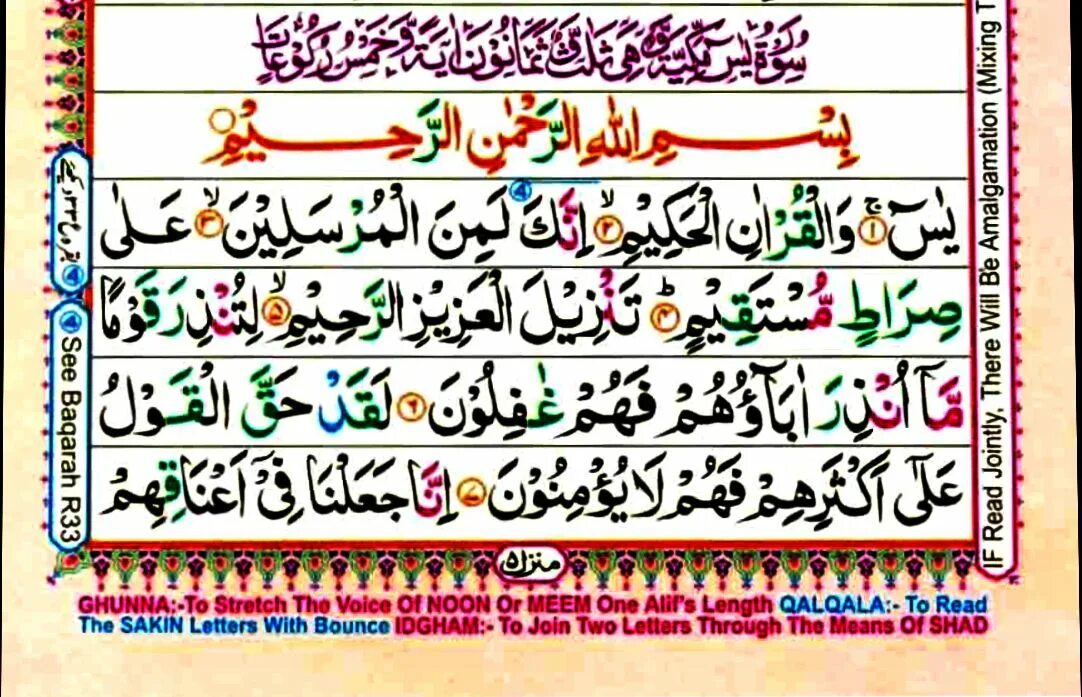 سُوۡرَةُ يٰسٓ مَكِّيَّةٌ وَّهِيَ ثَلٰثٌ وَّثَمَانُوۡنَ اٰيَةً وَّخَمۡسُ رُكُوۡعَاتٍ
بِسۡمِ اللّٰهِ الرَّحۡمٰنِ الرَّحِيۡمِ
يٰسٓ ۚ ١ وَالۡقُرۡاٰنِ الۡحَكِيۡمِ ۙ ٢ اِنَّكَ لَمِنَ الۡمُرۡسَلِيۡنَ ۙ ٣ عَلٰى
صِرَاطٍ مُّسۡتَقِيۡمٍ ؕ ٤ تَنۡزِيۡلَ الۡعَزِيۡزِ الرَّحِيۡمِ ۙ ٥ لِتُنۡذِرَ قَوۡمًا
مَّاۤ اُنۡذِرَ اٰبَآؤُهُمۡ فَهُمۡ غٰفِلُوۡنَ ٦ لَقَدۡ حَقَّ الۡقَوۡلُ
عَلٰٓى اَكۡثَرِهِمۡ فَهُمۡ لَا يُؤۡمِنُوۡنَ ٧ اِنَّا جَعَلۡنَا فِىۡۤ اَعۡنَاقِهِمۡ
منزل ٥
GHUNNA:-To Stretch The Voice Of NOON Or MEEM One Alif's Length QALQALA:- To Read
The SAKIN Letters With Bounce IDGHAM:- To Join Two Letters Through The Means Of SHAD
④ See Baqarah R33
IF Read Jointly, There Will Be Amalgamation (Mixing